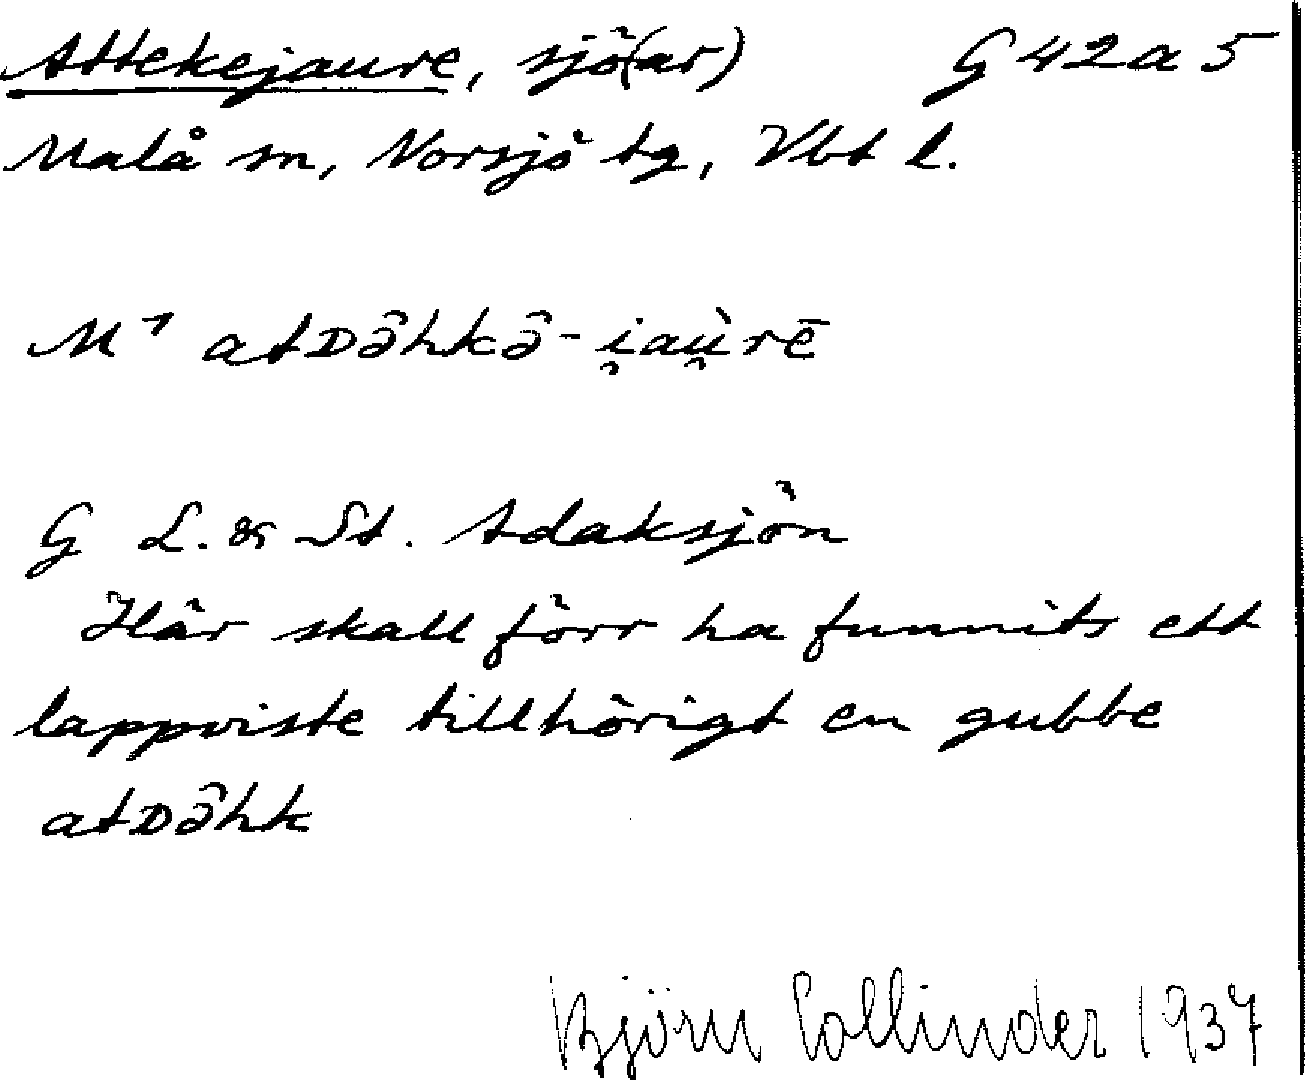 Attekejaure, sjö(ar) G 42 a 5
Malå sn, Norsjö tg, Vbt l.
M¹ atᴅə̂hkə̂-i̯aù̯rē
G L. & St. Adaksjön
Här skall förr ha funnits ett
lappviste tillhörigt en gubbe
atᴅə̂hk
Björn Collinder 1937